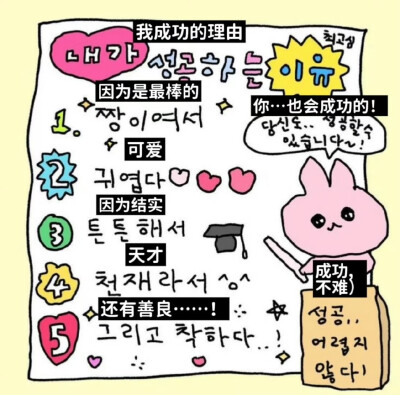 我成功的理由
내가 성공하는 이유
최고심
因为是最棒的
1. 짱이여서
你…也会成功的！
당신도.. 성공할수
있습니다~!
可爱
2 귀엽다
因为结实
3 튼튼해서
天才
4 천재라서 ^o^
还有善良……！
5 그리고 착하다..!
成功，
不难）
성공..
어렵지
않다!